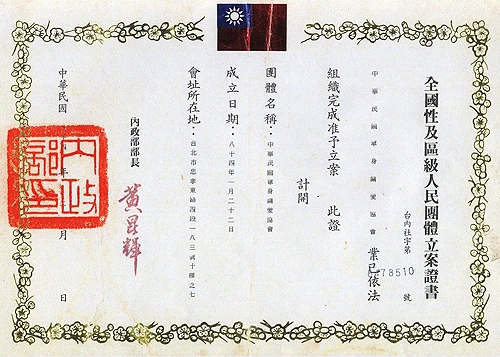 全國性及區級人民團體立案證書
台內社字第 78510 號
中華民國單身關愛協會 業已依法
組織完成准予立案 此證
計開
團體名稱：中華民國單身關愛協會
成立日期：八十四年一月二十二日
會址所在地：台北市忠孝東路四段一八三號十樓之七
內政部部長 黃昆輝
中華民國 年 月 日
內政部印